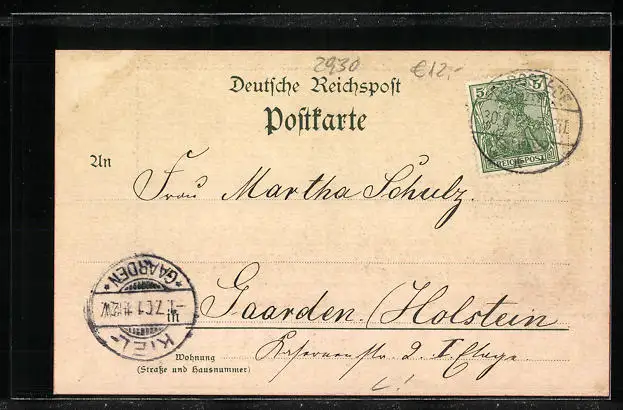 2930
€12,-
Deutsche Reichspost
Postkarte
5 5
REICHSPOST
An
Frau Martha Schulz.
KIEL-
*GAARDEN*
-1.7.01.11-12V.
in
Gaarden. (Holstein
Kasernenstr. 2. I. Etage.
Wohnung
(Straße und Hausnummer)